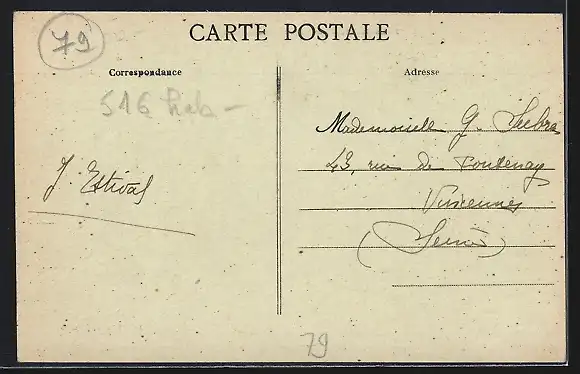 79
CARTE POSTALE
Correspondance
Adresse
516
Mademoiselle G.
43, rue de Fontenay
J. Estival
Vincennes
(Seine)
79